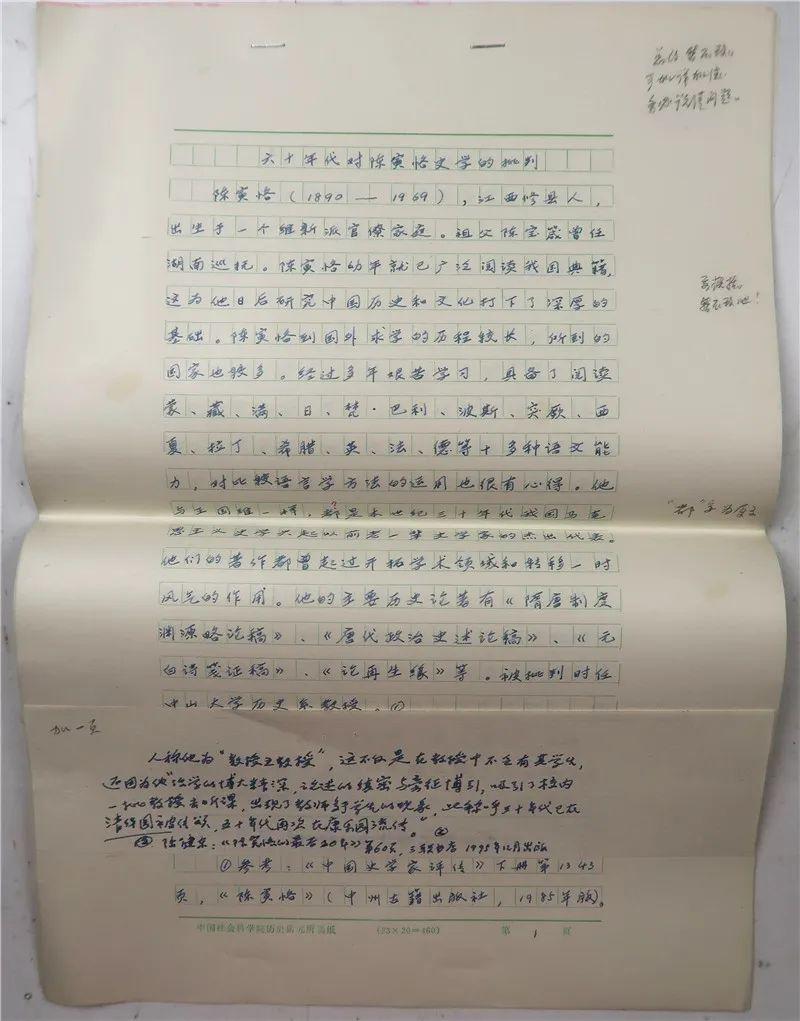 六十年代对陈寅恪史学的批判
陈寅恪（1890—1969），江西修县人，
出生于一个维新派官僚家庭。祖父陈宝箴曾任
湖南巡抚。陈寅恪幼年就已广泛阅读我国典籍，
这为他日后研究中国历史和文化打下了深厚的
基础。陈寅恪到国外求学的历程较长，所到的
国家也较多。经过多年艰苦学习，具备了阅读
蒙、藏、满、日、梵、巴利、波斯、突厥、西
夏、拉丁、希腊、英、法、德等十多种语文能
力，对比较语言学方法的运用也很有心得。他
与王国维一样，都是本世纪三十年代我国马克
思主义史学兴起以前老一辈史学家的杰出代表。
"都"字为
他们的著作都曾起过开拓学术领域和转移一时
风气的作用。他的主要历史论著有《隋唐制度
渊源略论稿》、《唐代政治史述论稿》、《元
白诗笺证稿》、《论再生缘》等。被批判时任
中山大学历史系教授。①
加一页
人称他为"教授之教授"，这不仅是在教授中不乏有其学生，
还因为他"治学的博大精深，论述的缜密与旁征博引，吸引了校内
一些教授去听课，出现了教师多于学生的现象，此称呼三十年代已在
清华园中被传颂，五十年代再次在康乐园流传。"②
② 陆键东：《陈寅恪的最后20年》第60页，三联书店1995年12月出版
①参考：《中国史学家评传》下册第1343
页，《陈寅恪》（中州古籍出版社，1985年版）。
中国社会科学院历史研究所稿纸 (23×20=460) 第 1 页